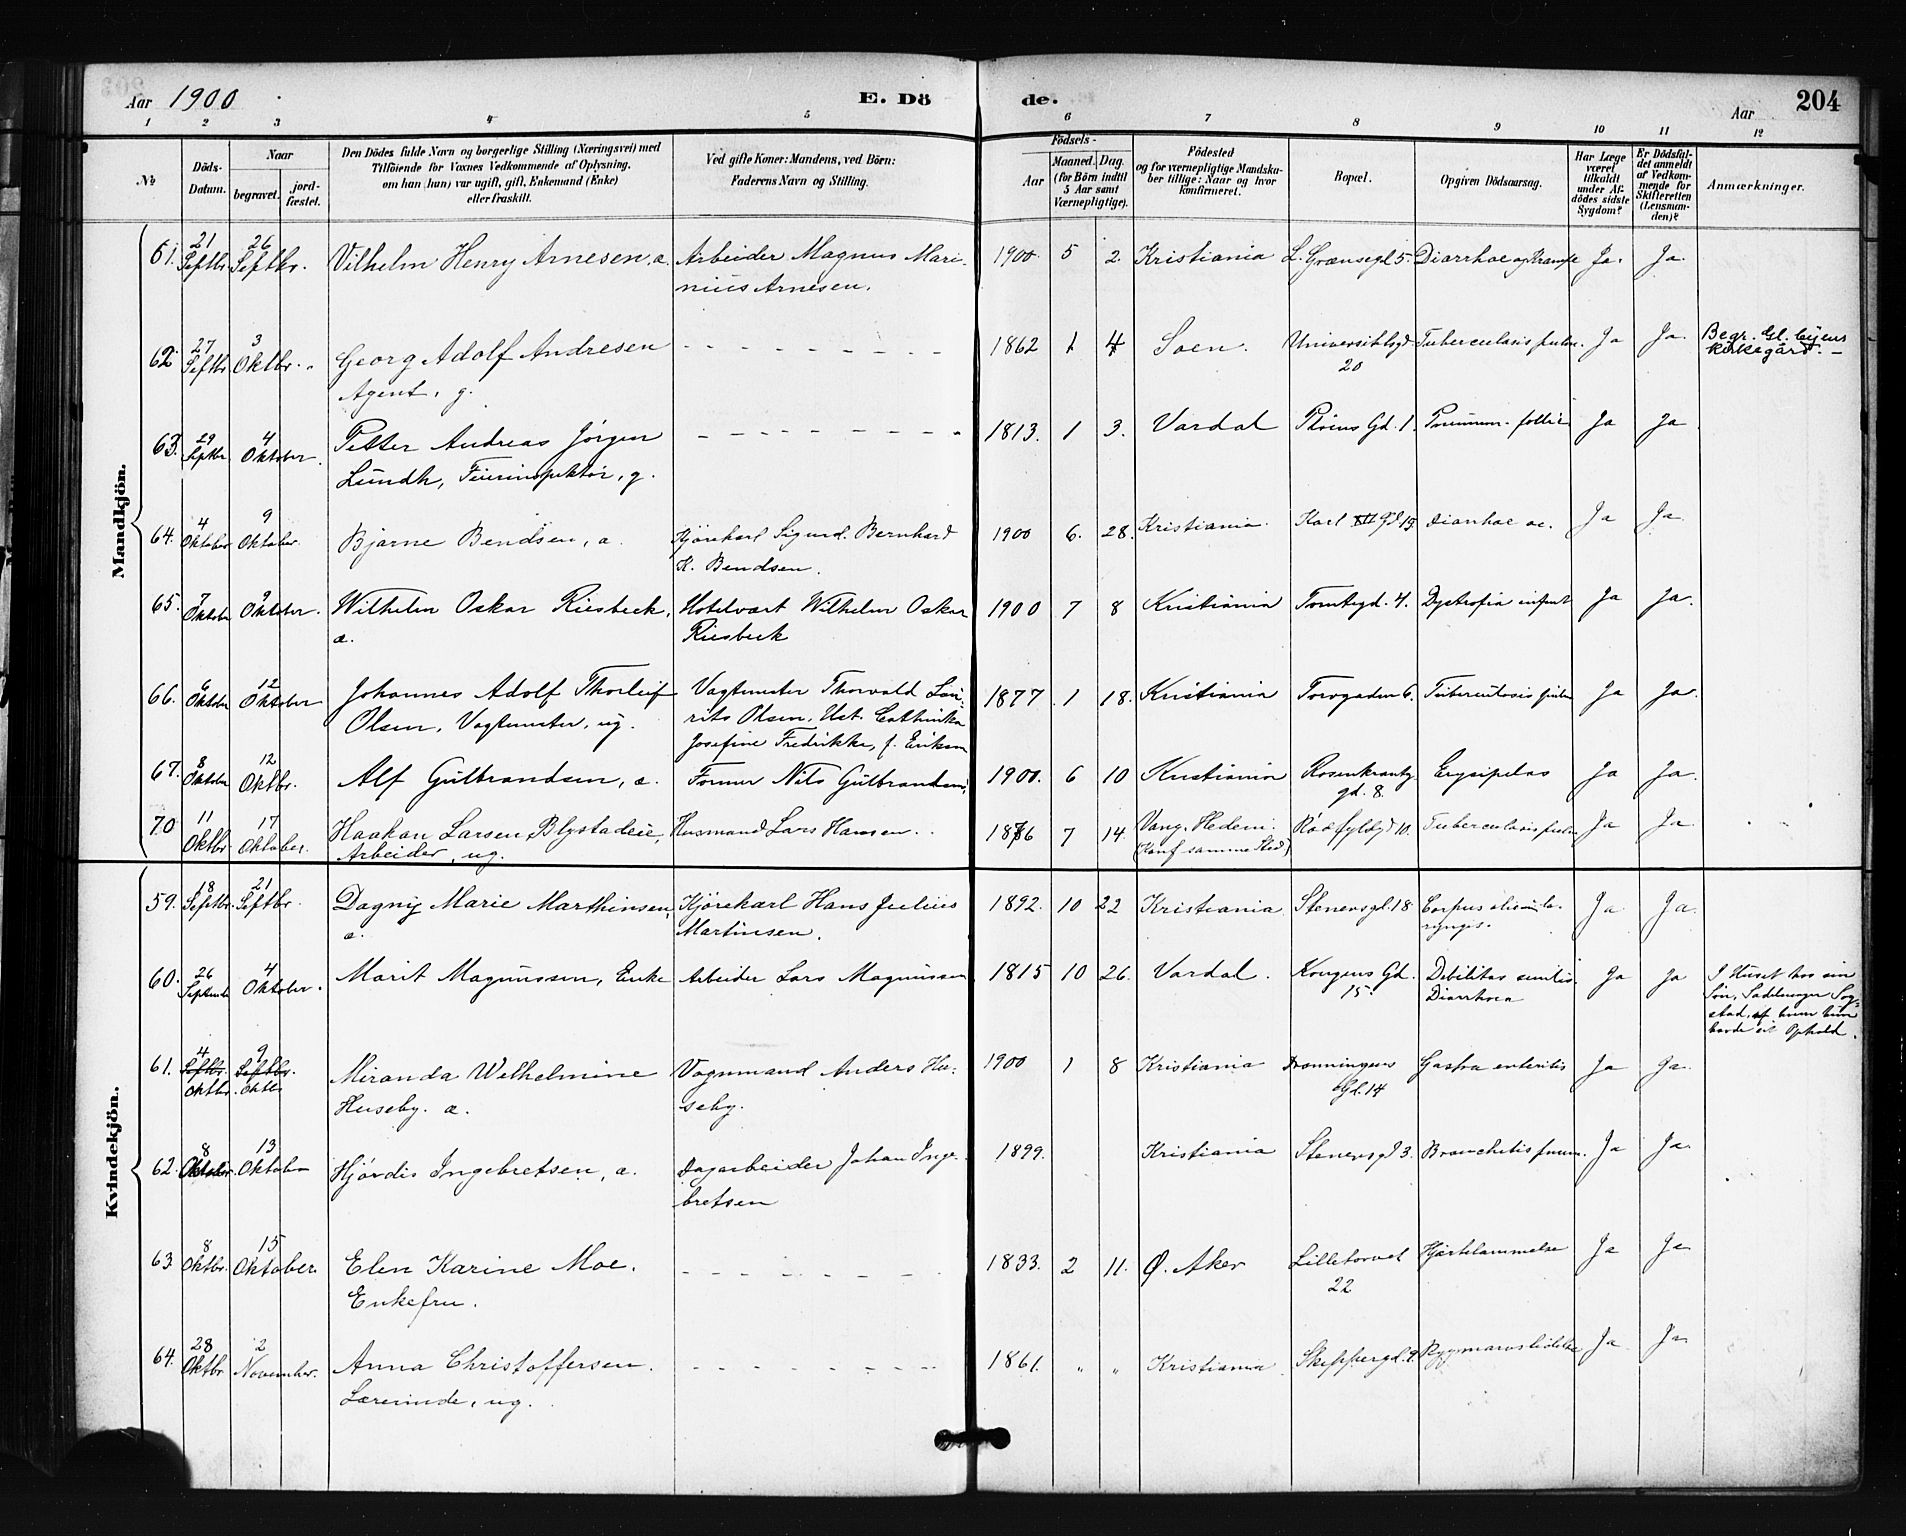 Aar 1900
E. Dö
de.
Aar
204
1 2 3 4 5 6 7 8 9 10 11 12
No
Döds-
Datum.
Naar
begravet.
jord-
fæstet.
Den Dödes fulde Navn og borgerlige Stilling (Næringsvei) med
Tilföiende for Voxnes Vedkommende af Oplysning.
om han (hun) var ugift, gift, Enkemand (Enke)
eller fraskilt.
Ved gifte Koner: Mandens, ved Börn:
Faderens Navn og Stilling.
Födsels-
Aar
Maaned. Dag.
(for Börn indtil
5 Aar samt
Værnepligtige).
Födested
og for værnepligtige Mandska-
ber tillige: Naar og hvor
konfirmeret.
Bopæl.
Opgiven Dödsaarsag.
Har Læge
været
tilkaldt
under Af-
dödes sidste
Sygdom?
Er Dödsfal-
det anmeldt
af Vedkom-
mende for
Skifteretten
(Lensman-
den)?
Anmærkninger.
Mandkjön.
61. 21 Septbr. 26 Septbr. Vilhelm Henry Arnesen, a. Arbeider Magnus Mari- 1900 5 2. Kristiania L. Grænsegd 5. Diarrhoe og Krampe Ja. Ja.
nius Arnesen.
62 27 Septbr 3 Oktbr. Georg Adolf Andresen 1862 1 4 Soen. Universitetsgd. Tuberculosis pulm. Ja Ja. Begr. Gl. 
Agent, g. 20 Kirkegård. -
63. 29 Septbr. 4 Oktober. Petter Andreas Jörgen 1813. 1 3. Vardal Gd. 1. Ja Ja
Lundh, g.
64. 4 Oktober 9 Oktober. Bjarne Bendsen, a. Kjörekarl Sigurd. Bernhard 1900 6. 28. Kristiania. Karl XII Gd 19 Diarrhoe ac. Ja Ja.
K. Bendsen.
65. 7 Oktober 9 Oktober. Wilhelm Oskar Riesbeck, Hotelvært Wilhelm Oskar 1900 7 8 Kristiania Tomtegd. 4. Dystrofia infant Ja Ja.
a. Riesbeck
66. 6 Oktober 12 Oktober Johannes Adolf Thorleif Vagtmester Thorvald Lau- 1877 1 18. Kristiania Torvgaden 6. Tuberculosis pulm Ja Ja.
Olsen, Vagtmester, ug. rits Olsen, Hst. Cathinka
Josefine Fredrikke, f. Eriksen
67. 8 Oktober 12 Oktbr. Alf Gulbrandsen, a. Former Nils Gulbrandsen, 1900. 6 10 Kristiania Rosenkrantz Erysipelas Ja Ja.
gd. 8.
70 11 Oktbr 17 Oktober. Haakon Larsen Blystadeie, Husmand Lars Hansen. 1876 7 14. Vang. Hedem. Rödfyldgd 10. Tuberculosis pulm Ja Ja
Arbeider, ug. (Konf samme Sted)
Kvindekjön.
59. 18 Septbr. 21 Septbr. Dagny Marie Marthinsen, Kjörekarl Hans Julius 1892. 10 22 Kristiania Stenersgd. 18 Corpus alienum la- Ja Ja.
a. Martinsen. ryngis.
60. 26 September 4 Oktober. Marit Magnussen, Enke Arbeider Lars Magnussen 1815 10 26. Vardal. Kongens Gd. Debilitas senilis. Ja Ja I Huset hos sin
15. Diarrhoea Sön, Sadelmager Sog-
stad, af hvem hun
havde sit Ophold.
61. 4 Septbr. Oktbr. 9 Septbr. Oktb. Miranda Wilhelmine Vognmand Anders Hu- 1900 1 8 Kristiania Dronningens Gastro enteritis Ja Ja.
Huseby. a. seby. Gd. 14
62. 8 Oktober. 13 Oktober Hjördis Ingebretsen, a. Dagarbeider Johan Inge- 1899. Kristiania Stenersgd 3. Bronchitis pneum. Ja Ja.
bretsen
63 8 Oktbr. 15 Oktober. Elen Karine Moe. 1833. 2 11. Ø. Aker Lilletorvet Hjertelammelse Ja Ja
Enkefru. 22
64. 28 Oktbr 2 November. Anna Christoffersen. 1861. " " Kristiania Skippergd. 9. Rygmarvslidelse Ja Ja
Lærerinde, ug.